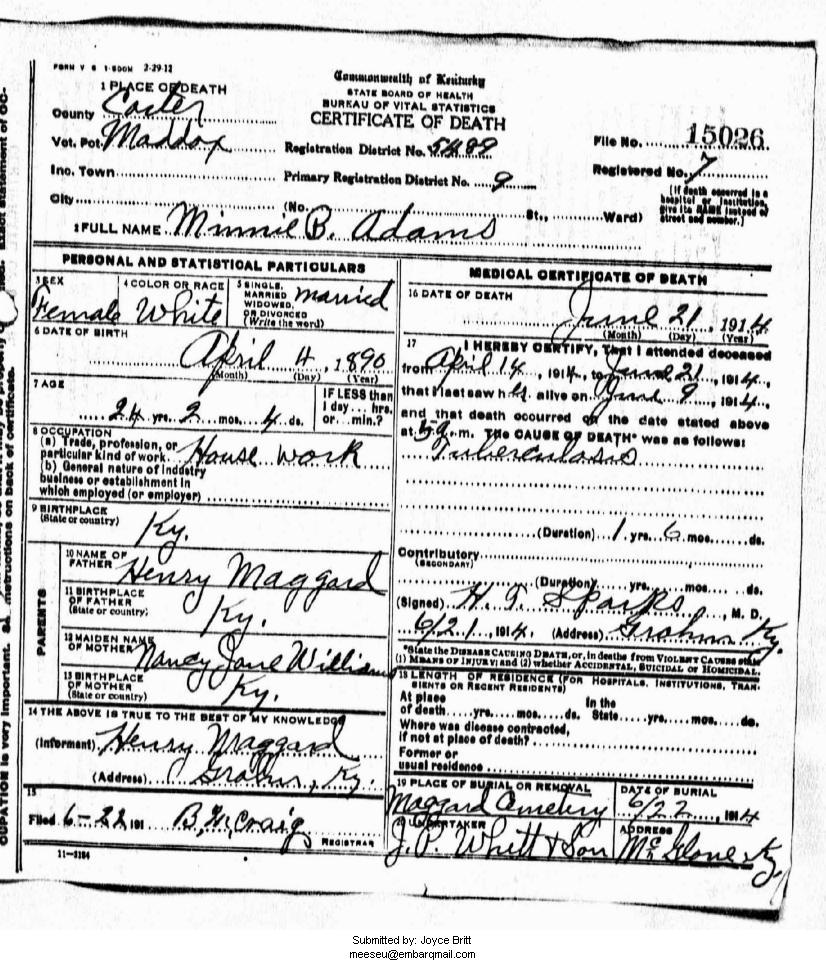 FORM V S 1-500M 2-29-12
Commonwealth of Kentucky
STATE BOARD OF HEALTH
BUREAU OF VITAL STATISTICS
CERTIFICATE OF DEATH
1 PLACE OF DEATH
County Carter
Vot. Pct. Maddox
Inc. Town
City
Registration District No. 5489
Primary Registration District No. 9
(No. St., Ward)
File No. 15026
Registered No. 7
[If death occurred in a
hospital or institution,
give its NAME instead of
street and number.]
2 FULL NAME Minnie B. Adams
PERSONAL AND STATISTICAL PARTICULARS
3 SEX
Female
4 COLOR OR RACE
White
5 SINGLE,
MARRIED
WIDOWED,
OR DIVORCED
(Write the word)
married
6 DATE OF BIRTH
April 4, 1890
(Month) (Day) (Year)
7 AGE
24 yrs. 2 mos. 4 ds.
IF LESS than
1 day... hrs.
or... min.?
8 OCCUPATION
(a) Trade, profession, or
particular kind of work. House work
(b) General nature of industry
business or establishment in
which employed (or employer)
9 BIRTHPLACE
(State or country)
Ky.
PARENTS
10 NAME OF
FATHER Henry Maggard
11 BIRTHPLACE
OF FATHER
(State or country)
Ky.
12 MAIDEN NAME
OF MOTHER Nancy Jane Williams
13 BIRTHPLACE
OF MOTHER
(State or country)
Ky.
14 THE ABOVE IS TRUE TO THE BEST OF MY KNOWLEDGE
(Informant) Henry Maggard
(Address) Grahn, Ky.
15
Filed 6-22 191
REGISTRAR
11-3184
MEDICAL CERTIFICATE OF DEATH
16 DATE OF DEATH
June 21, 1914
(Month) (Day) (Year)
17 I HEREBY CERTIFY, That I attended deceased
from April 14, 1914, to June 21, 1914,
that I last saw h alive on June 9, 1914,
and that death occurred on the date stated above
at 5 a.m. The CAUSE OF DEATH* was as follows:
Tuberculosis
(Duration) 1 yrs. 6 mos. ds.
Contributory
(SECONDARY)
(Duration) yrs. mos. ds.
(Signed) H. T. Sparks, M. D.
6/21, 1914. (Address) Grahn Ky.
*State the DISEASE CAUSING DEATH, or, in deaths from VIOLENT CAUSES state
(1) MEANS OF INJURY; and (2) whether ACCIDENTAL, SUICIDAL or HOMICIDAL.
18 LENGTH OF RESIDENCE (FOR HOSPITALS, INSTITUTIONS, TRAN-
SIENTS OR RECENT RESIDENTS)
At place
of death yrs. mos. ds.
In the
State yrs. mos. ds.
Where was disease contracted,
if not at place of death?
Former or
usual residence
19 PLACE OF BURIAL OR REMOVAL
Maggard Cemetery
DATE OF BURIAL
6/22, 1914
20 UNDERTAKER
J. P. Whitt & Son
ADDRESS
McGlone Ky.
CUPATION is very important. instructions on back of certificate.
Submitted by: Joyce Britt
meeseu@embarqmail.com